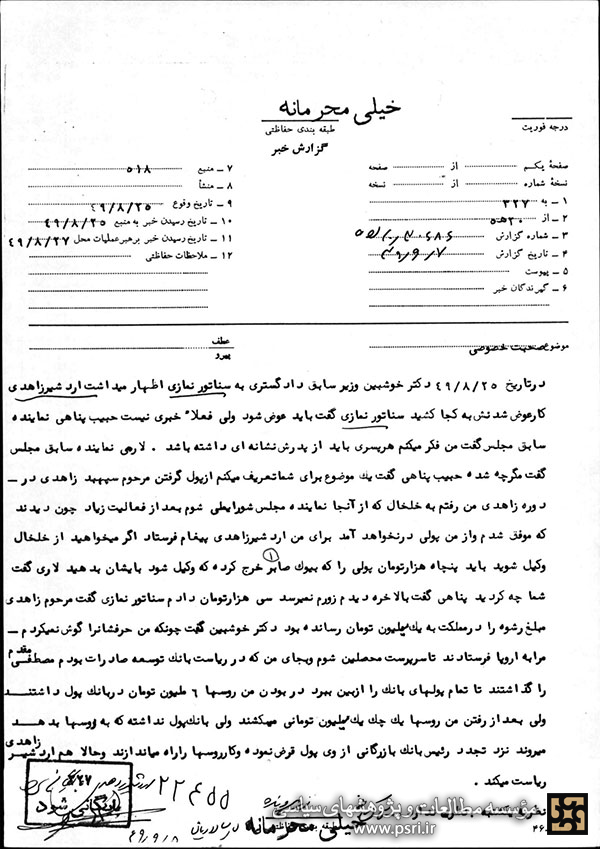 خیلی محرمانه
طبقه بندی حفاظتی
گزارش خبر
درجه فوریت
صفحهٔ یکم از صفحه
نسخهٔ شماره از نسخه
۱ ـ به ۳۲۷
۲ ـ از ۲۰ه۵
۳ ـ شماره گزارش
۴ ـ تاریخ گزارش ۴۹/۹/۷
۵ ـ پیوست
۶ ـ گیرندگان خبر
۷ ـ منبع ۵۱۸
۸ ـ منشأ
۹ ـ تاریخ وقوع ۴۹/۸/۲۵
۱۰ ـ تاریخ رسیدن خبر به منبع ۴۹/۸/۲۵
۱۱ ـ تاریخ رسیدن خبر برهبر عملیات محل ۴۹/۸/۲۷
۱۲ ـ ملاحظات حفاظتی
موضوع صحبت خصوصی
عطف
پیرو
درتاریخ ۴۹/۸/۲۵ دکتر خوشبین وزیر سابق دادگستری به سناتور نمازی اظهار میداشت اردشیرزاهدی
کارعوض شدنش به کجا کشید سناتور نمازی گفت باید عوض شود ولی فعلا خبری نیست حبیب پناهی نماینده
سابق مجلس گفت من فکر میکنم هرپسری باید از پدرش نشانه ای داشته باشد . لارجی نماینده سابق مجلس
گفت مگرچه شده حبیب پناهی گفت یك موضوع برای شماتعریف میکنم ازپول گرفتن مرحوم سپهبد زاهدی در ـ
دوره زاهدی من رفتم به خلخال که از آنجا نماینده مجلس شورایملی شوم بعد از فعالیت زیاد چون دیدند
که موفق شدم واز من پولی درنخواهد آمد برای من اردشیرزاهدی پیغام فرستاد اگر میخواهید از خلخال
وکیل شوید باید پنجاه هزارتومان پولی را که بیوك صابر (۱) خرج کرده که وکیل شود بایشان بدهید لاری گفت
شما چه کردید پناهی گفت بالاخره دیدم زورم نمیرسد سی هزارتومان دادم سناتور نمازی گفت مرحوم زاهدی
مبلغ رشوه را درمملکت به یك میلیون تومان رسانده بود دکتر خوشبین گفت چونکه من حرفشانرا گوش نمیکردم ـ
مرابه اروپا فرستادند تاسرپرست محصلین شوم وبجای من که در ریاست بانك توسعه صادرات بودم مصطفی مقدم
را گذاشتند تا تمام پولهای بانك را ازبین ببرد در بودن من روسها ۶ ملیون تومان دربانك پول داشتند
ولی بعد از رفتن من روسها یك چك یك میلیون تومانی میکشند ولی بانك پول نداشته که به روسها بدهد
میروند نزد تجدد رئیس بانك بازرگانی از وی پول قرض نموده وکارروسها راراه میاندازند وحالا هم اردشیر زاهدی
ریاست میکند .
بایگانی شود
۲۲۴۵۵
خیلی محرمانه
مؤسسه مطالعات و پژوهشهای سیاسی
www.psri.ir